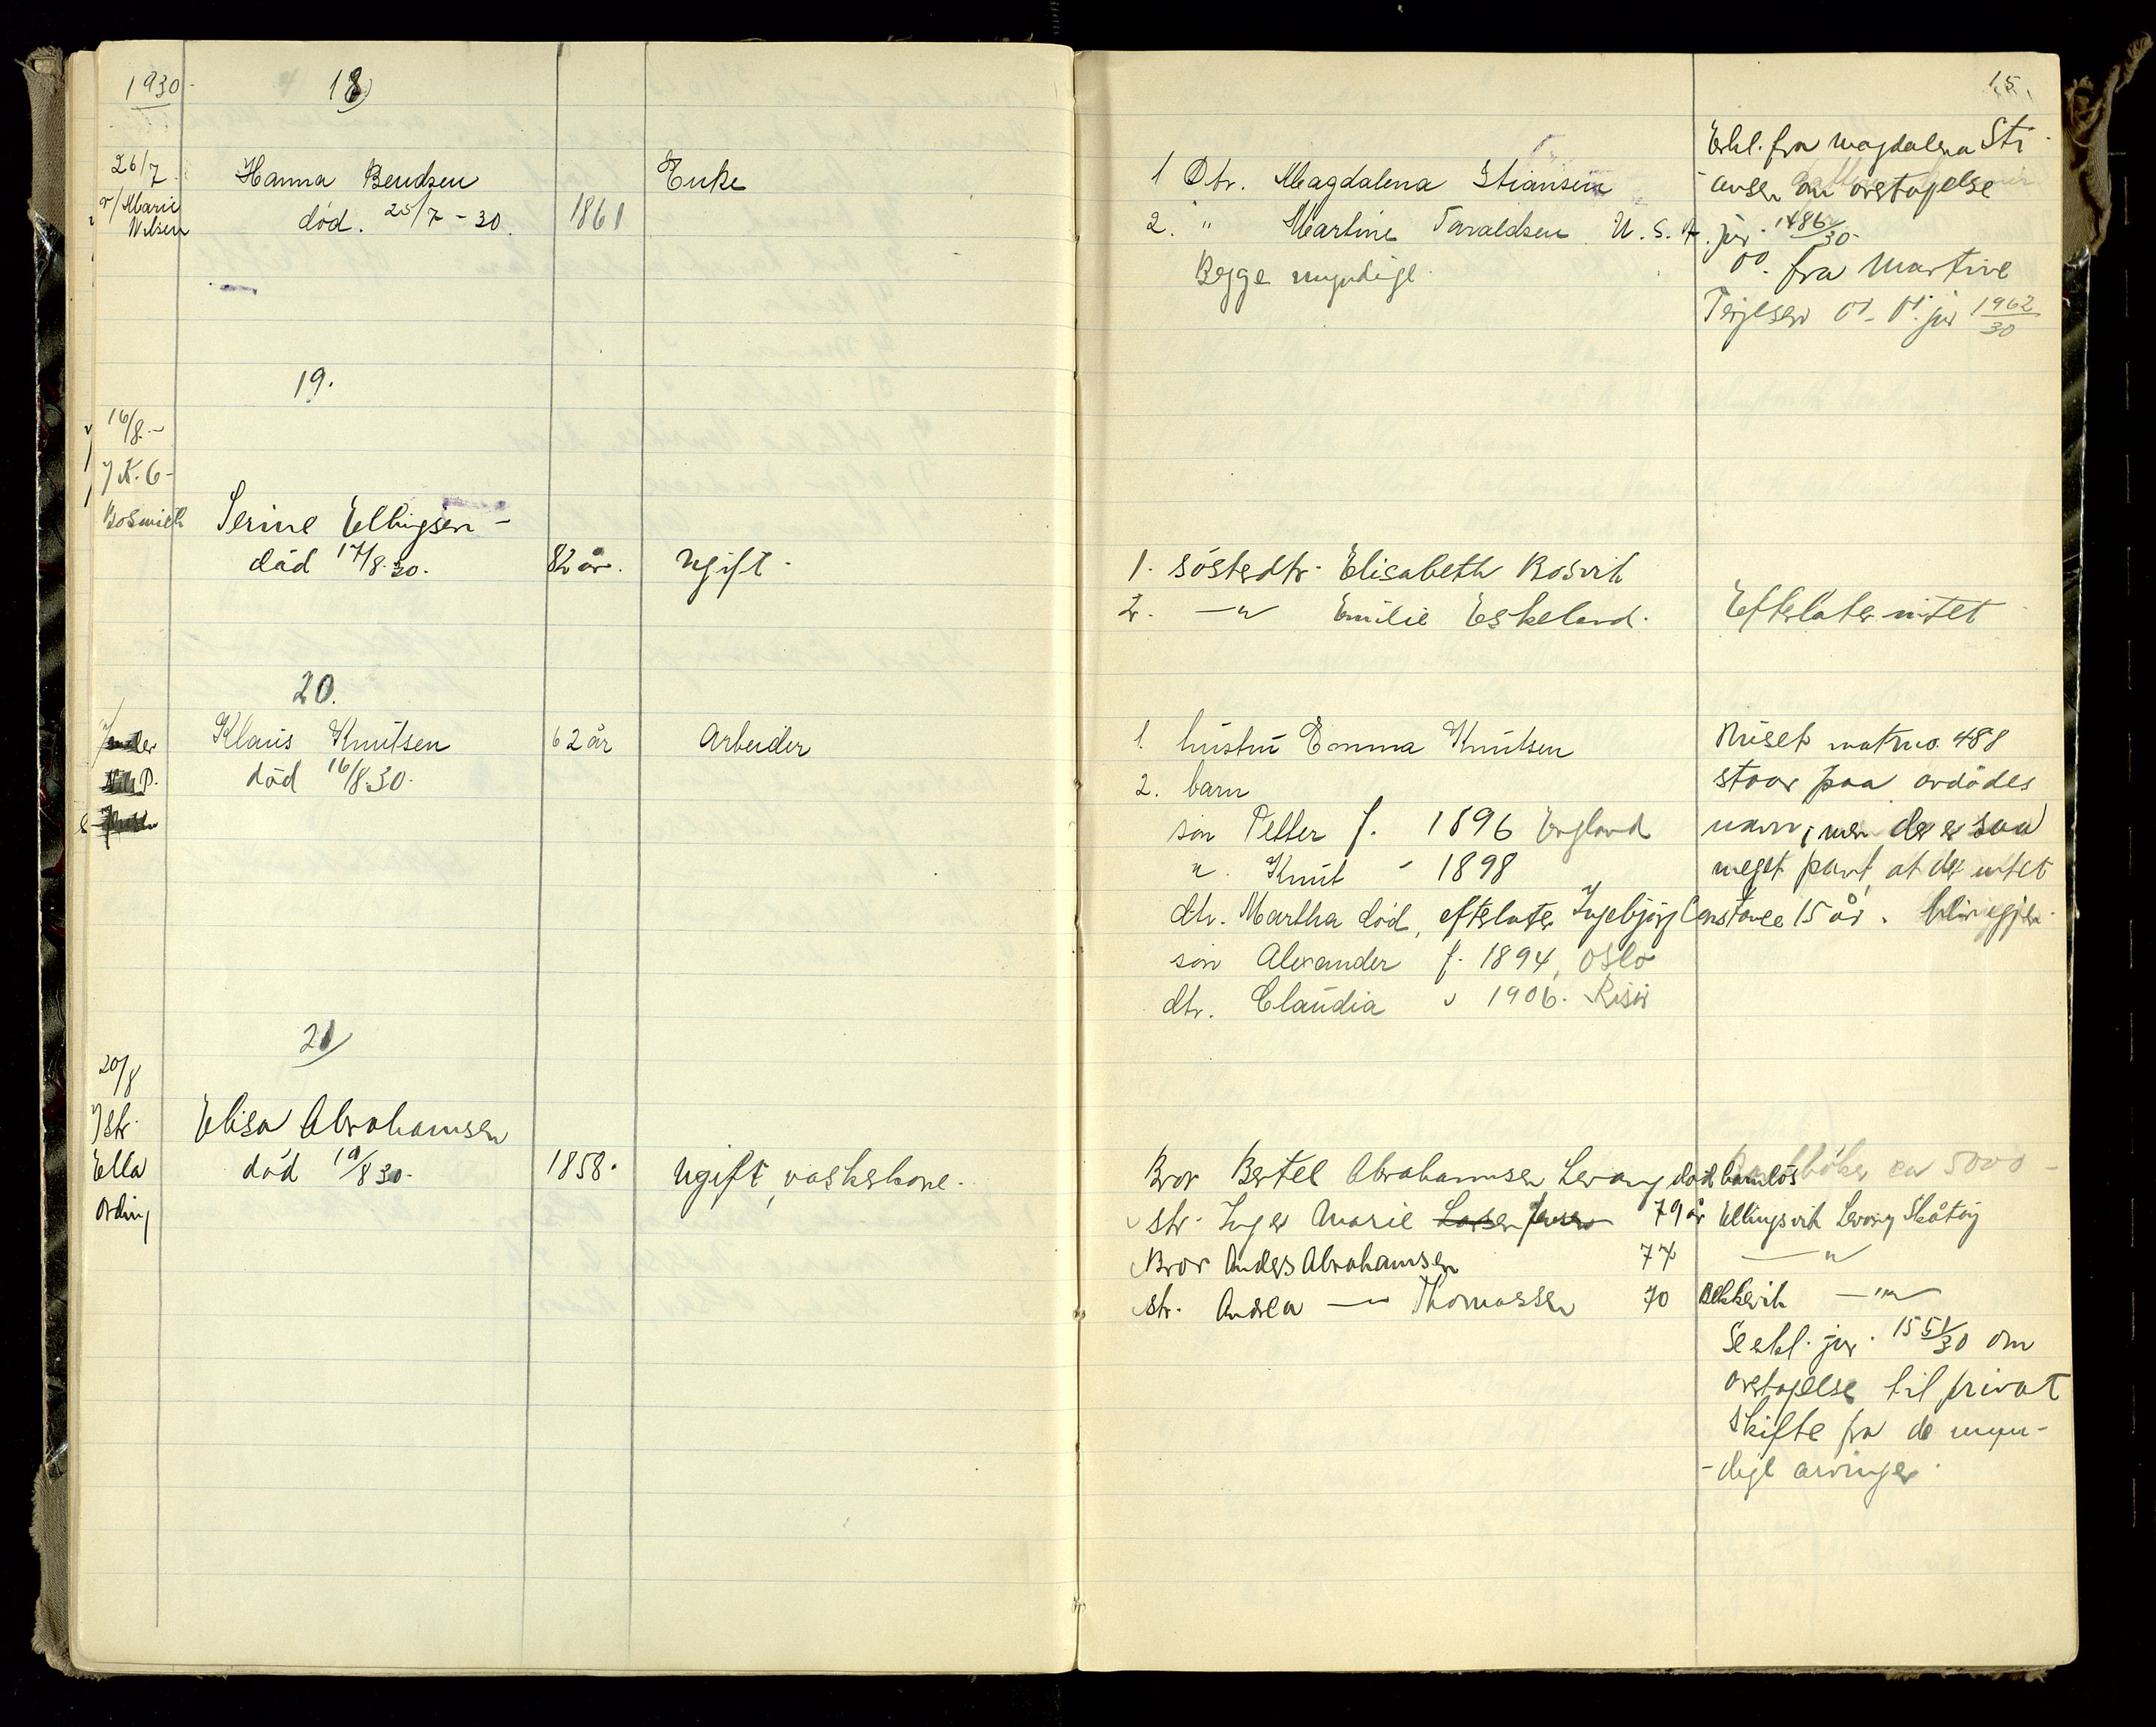 1930
18)
26/7
v/Marie
Nilsen
Hanna Bendsen
død. 25/7 - 30.
1861
Enke
1 Dtr. Magdalena Stiansen
2. " Martine Taraldsen U.S.A.
Begge myndige
15.
Erkl. fra Magdalena Sti
ansen om overtagelse
jnr. 1486/30
Do. fra Martine
Terjesen jnr 1962/30
19.
16/8.-
Serine Ellingsen -
død 17/8.30.
82 år.
ugift.
1. søsterdtr. Elisabeth Bosvik
2. —"— Emilie Eskeland.
Efterlater intet
20.
Klaus Knutsen
død 16/8 30.
62 år
Arbeider
1. hustru Emma Knutsen
2. barn
søn Petter f. 1896 England
" Knut - 1898
dtr. Martha død, efterlater Ingebjørg Constance 15 år.
søn Alexander f. 1894, Oslo
dtr. Claudia " 1906. Risør
Huset matr no. 488
staar paa avdødes
navn, men der er saa
meget pant, at der intet
blir igjen.
21)
20/8
Elisa Abrahamsen
død 19/8 30.
1858.
ugift, vaskekone.
Ella
Ording
Bror Bertel Abrahamsen Levang død barnløs
str. Inger Marie Larsen Jensen 79 år Ellingsvik Levang Skåtøy
Bror Anders Abrahamsen 77 —"—
str. Andrea —"— Thomassen 70 Bekkevik —"—
Se erkl. jnr. 1551/30 om
overtagelse til privat
skifte fra de myn-
-dige arvinger.